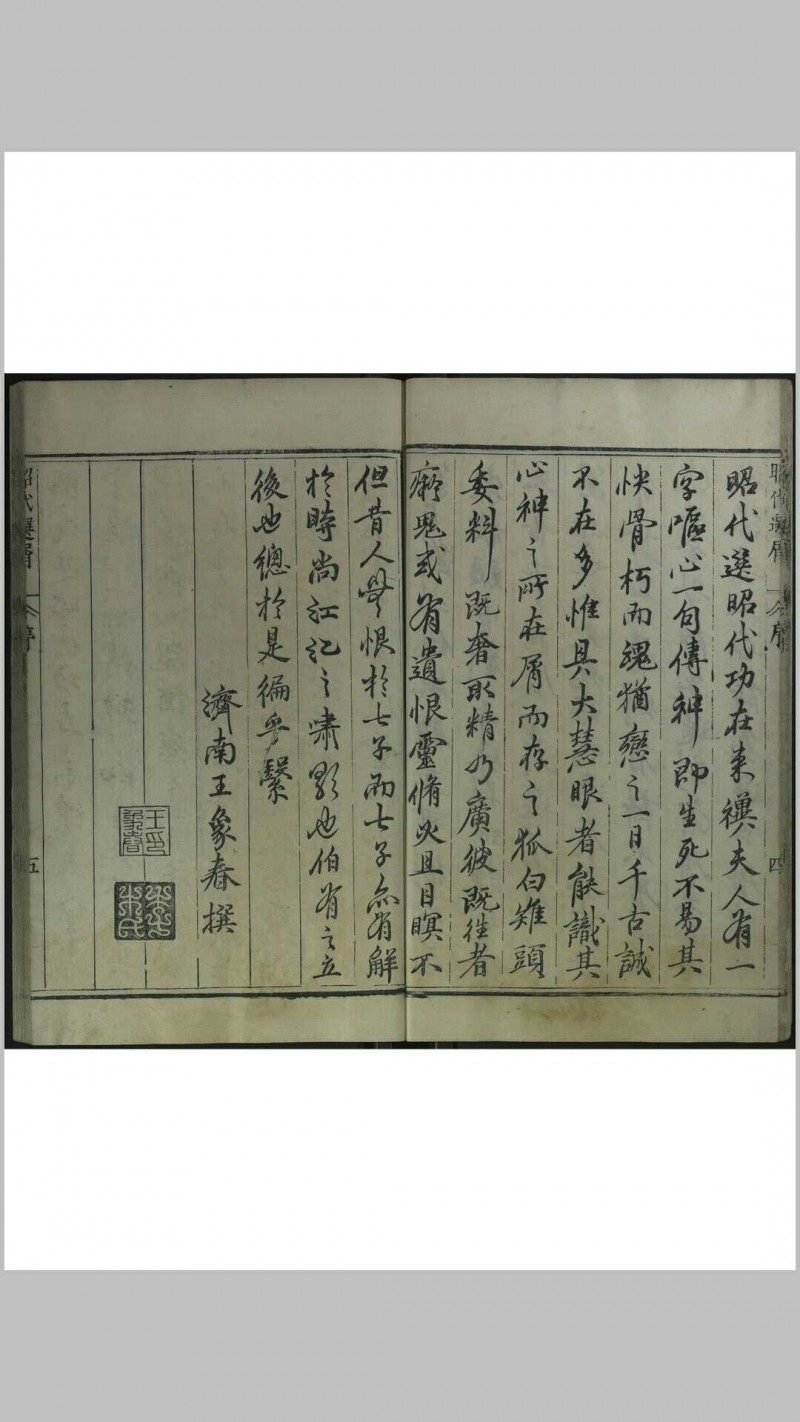 昭代選屑
四
昭代選昭代功在来禩夫人有一
字嘔心一句傳神即生死不易其
快骨朽而魂猶戀之一日千古誠
不在多惟具大慧眼者能識其
心神之所在屑而存之狐白雉頭
委料既奢取精乃廣彼既徃者
痴鬼或有遺恨靈脩火且目瞑不
但昔人無恨於七子而七子亦有解
於時尚江汜之嘯歌也伯有之立
後也總於是編乎繫
濟南王象春撰
王象春印
昭代選屑
序
五